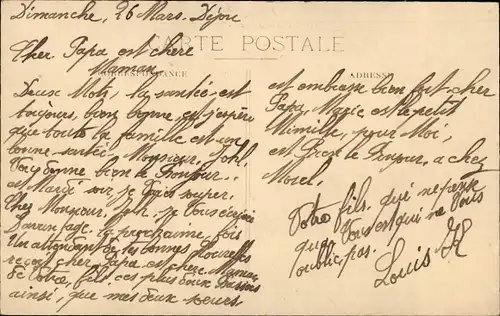 Dimanche, 26 Mars. Dijon
CARTE POSTALE
Cher Papa est chère
Maman
CORRESPONDANCE
Deux Mots, la santé est
toujours, bien bonne, et j'espère
que toute la famille est en
bonne santée. Monsieur,
Vous donne bien le Bonjour.
et Mardi soir je Vais souper.
Chez Monsieur, je Vous écrirais
D'avantage, la prochaine, fois
En attendant de Vos bonnes Nouvelles
reçois cher Papa est chère Maman
de Votre, fils, ces plus doux Baisers
ainsi, que mes deux sœurs
ADRESSE
est embrasse bien fort, cher
Papa, Marie est le petit
Mimille, pour Moi,
est Bien le Bonjour, a chez
Morel.
Votre fils, qui ne pense
qu'a Vous est qui ne Vous
oublie, pas.
Louis H